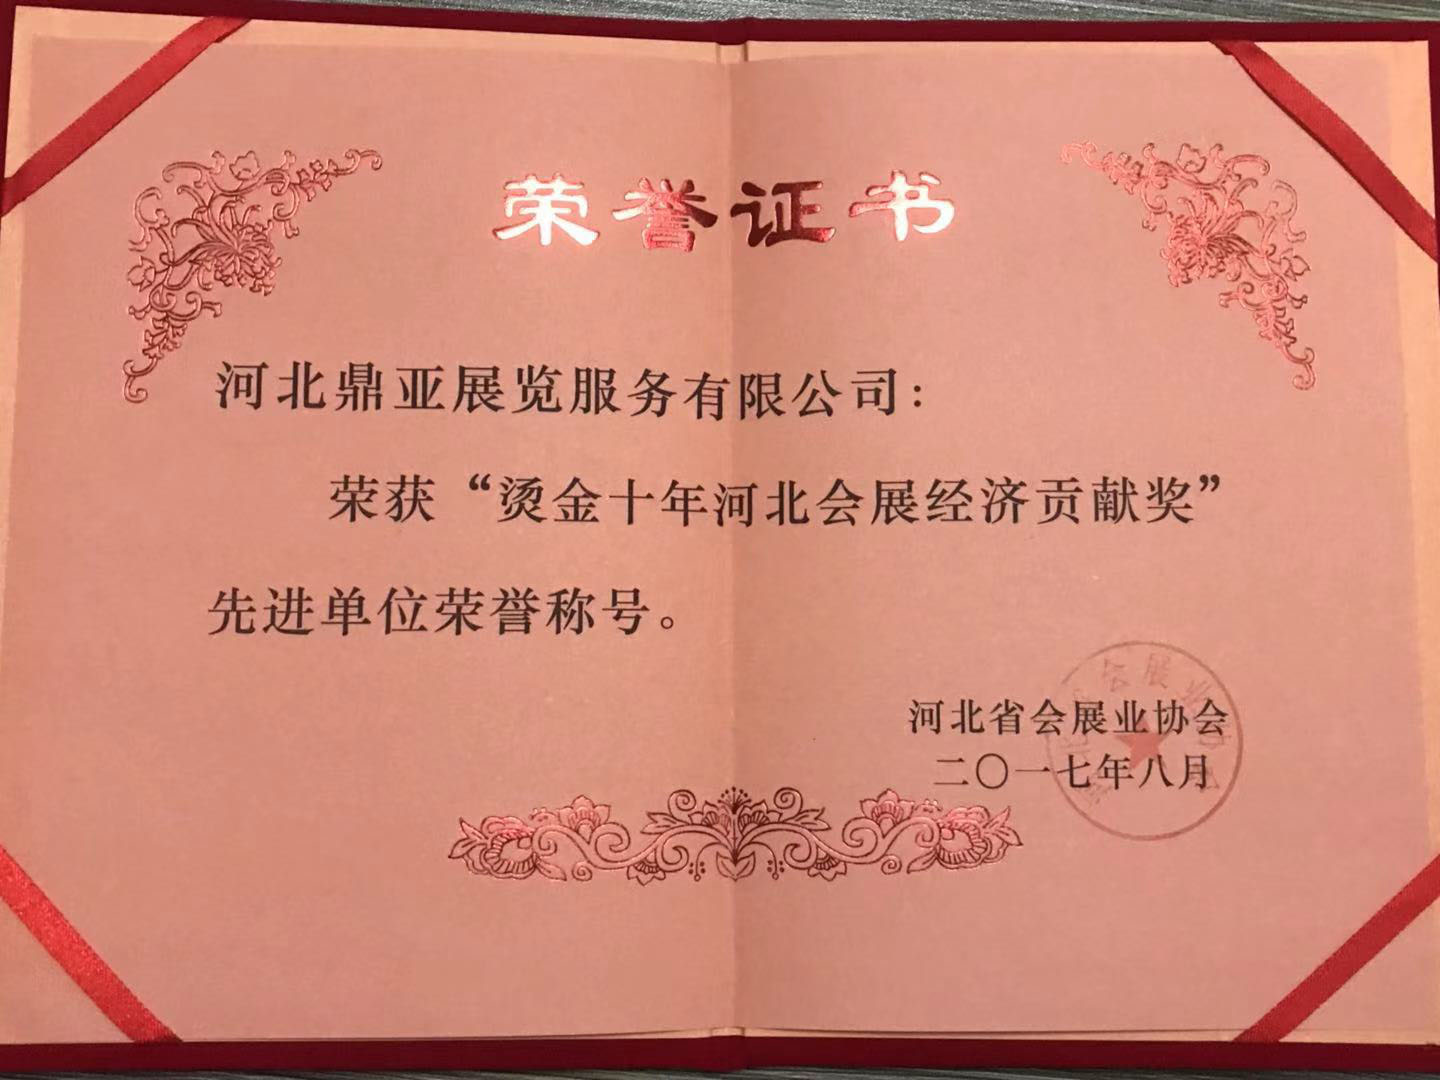 荣誉证书
河北鼎亚展览服务有限公司：
荣获“烫金十年河北会展经济贡献奖”
先进单位荣誉称号。
河北省会展业协会
二〇一七年八月